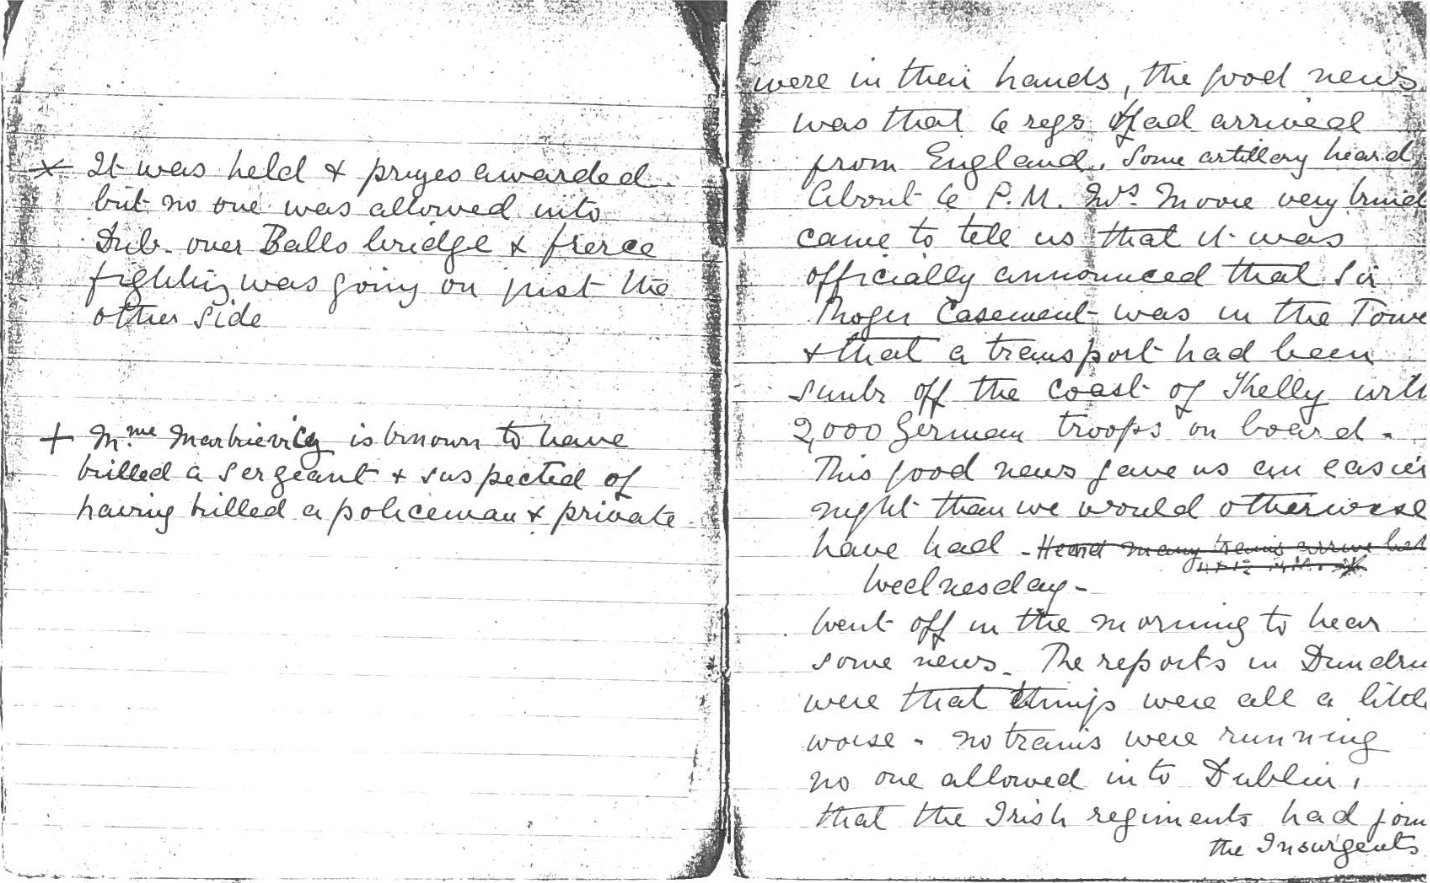 × It was held & prizes awarded.
but no one was allowed into
Dub. over Balls bridge & fierce
fighting was going on just the
other side
+ Mme Markievicz is known to have
killed a sergeant & suspected of
having killed a policeman & private
were in their hands, the good news
was that 6 regs had arrived
from England. Some artillery heard
About 6 P.M. Mrs. Moore very kind
came to tell us that it was
officially announced that Sir
Roger Casement was in the Towe
& that a transport had been
sunk off the coast of Kelly with
2,000 German troops on board.
This good news gave us an easier
night than we would otherwise
have had - Heard many trains arrive
Wednesday -
Went off in the morning to hear
some news. The reports in Dundru
were that things were all a little
worse - no trains were running
no one allowed into Dublin,
that the Irish regiments had join
the Insurgents